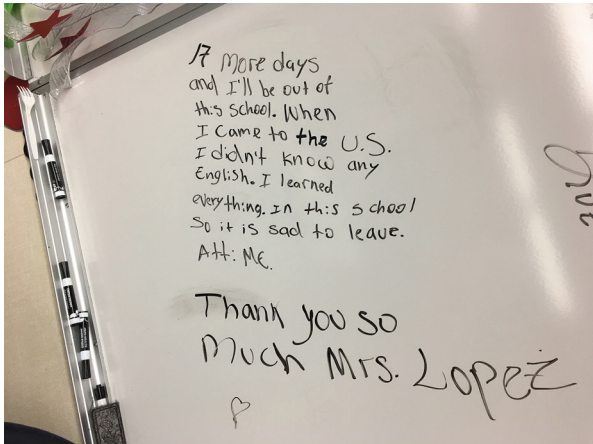 17 More days
and I'll be out of
this school. When
I came to the U.S.
I didn't know any
English. I learned
everything. In this school
So it is sad to leave.
Att: ME.
Thank you so
Much Mrs. Lopez